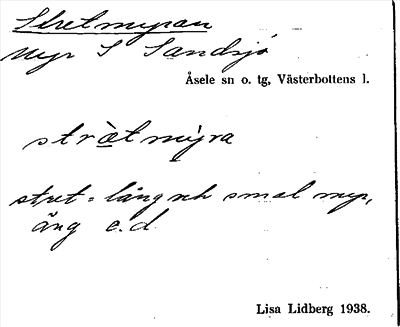 Stretmyran
myr S Sandsjö
Åsele sn o. tg, Västerbottens l.
stræ̀tmỳra
stret = lång och smal myr,
äng e.d.
Lisa Lidberg 1938.